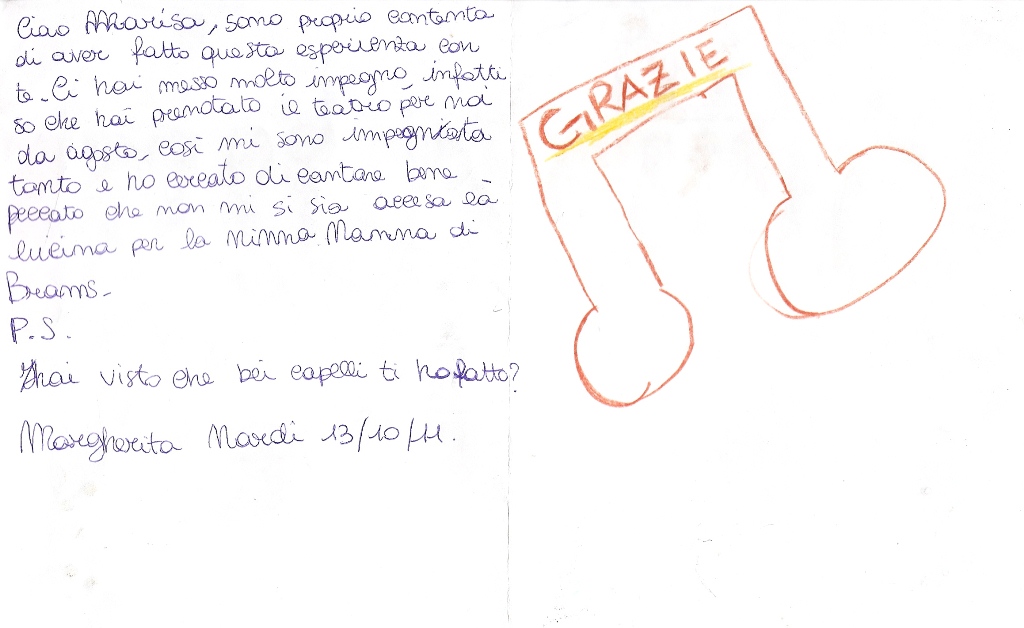 Ciao Marisa, sono proprio contenta
di aver fatto questa esperienza con
te. Ci hai messo molto impegno, infatti
so che hai prenotato il teatro per noi
da agosto, così mi sono impegnata
tanto e ho cercato di cantare bene
peccato che non mi si sia accesa la
lucina per la Ninna Nanna di
Breams.
P.S.
hai visto che bei capelli ti ho fatto?
Margherita Nardi 13/10/11.
GRAZIE